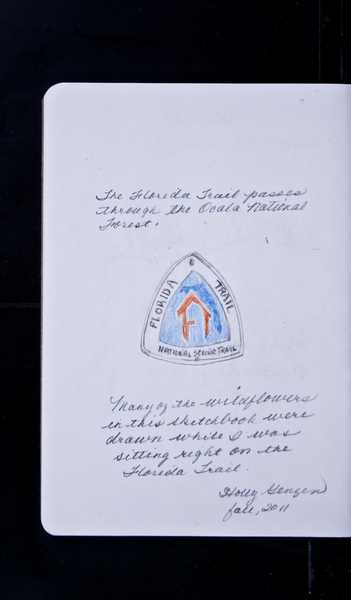 The Florida Trail passes
through the Ocala National
Forest.
FLORIDA TRAIL
FT
NATIONAL SCENIC TRAIL
Many of the wildflowers
in this sketchbook were
drawn while I was
sitting right on the
Florida Trail.
Holly
fall, 2011